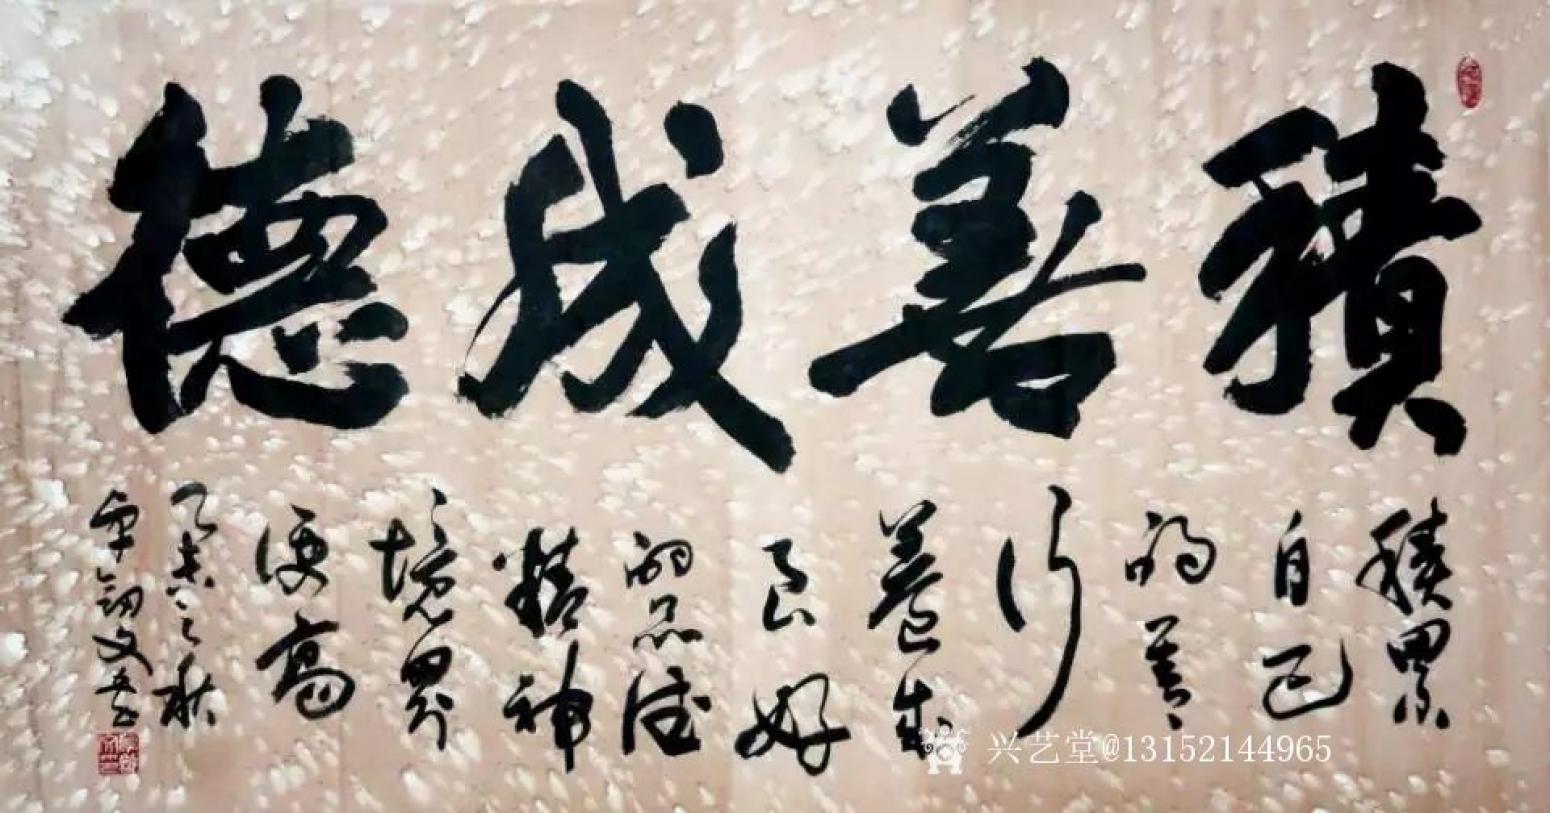 積善成德
積累
自己
的善
行
養成
良好
的品德
精神
境界
便高
乙未之秋
兴艺堂@13152144965